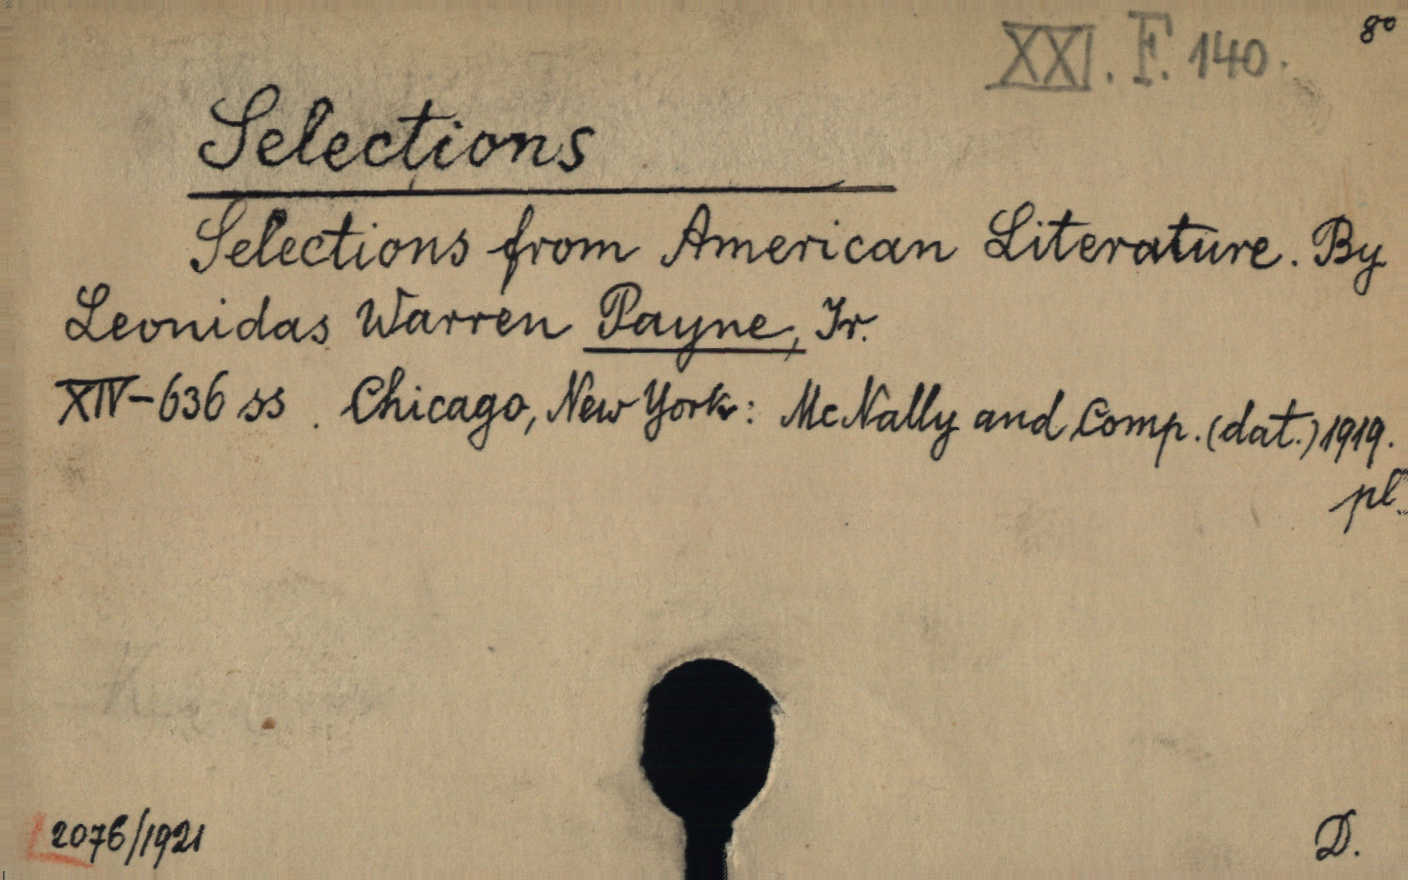 XXI. F. 140.
8º
Selections
Selections from American Literature. By
Leonidas Warren Payne, Jr.
XIV-636 ss. Chicago, New York: McNally and Comp. (dat.) 1919.
pl.
2076/1921
D.